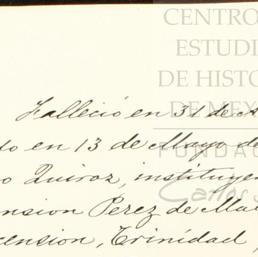 CENTRO
ESTUDI
DE HISTO
DE MEX
FUNDA
Carlos
Falleció en 31 de A
to en 13 de Mayo de
o Quiroz, instituye
ension Perez de Ma
cension, Trinidad,